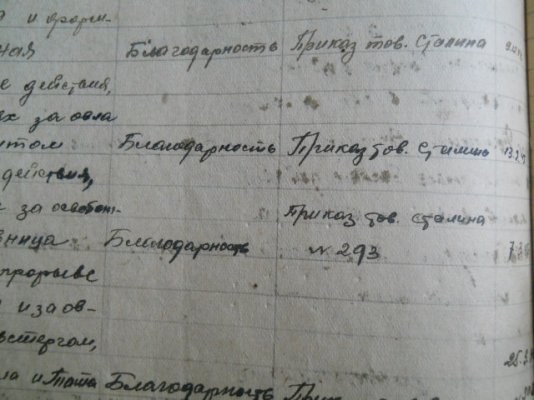 и форси-
ная Благодарность Приказ тов. Сталина
е действия,
х за овла
том Благодарность Приказ тов. Сталина
действия,
за освобож- Приказ тов. Сталина
вница Благодарность № 293
прорыве
и за ов-
стергом,
ла и Тата Благодарность При